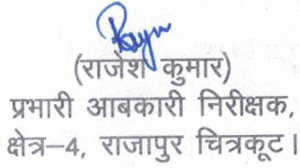 (राजेश कुमार)
प्रभारी आबकारी निरीक्षक,
क्षेत्र–4, राजापुर चित्रकूट।